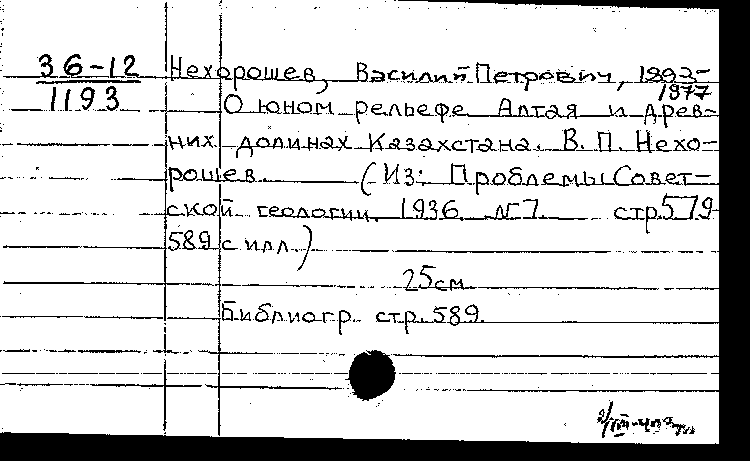 36-12
1193
Нехорошев, Василий Петрович, 1893-
1977
О юном рельефе Алтая и древ-
них долинах Казахстана. В. П. Нехо-
рошев. (Из: Проблемы Совет-
ской геологии. 1936. № 7. стр. 579
589 с илл.)
25см
Библиогр. стр. 589.